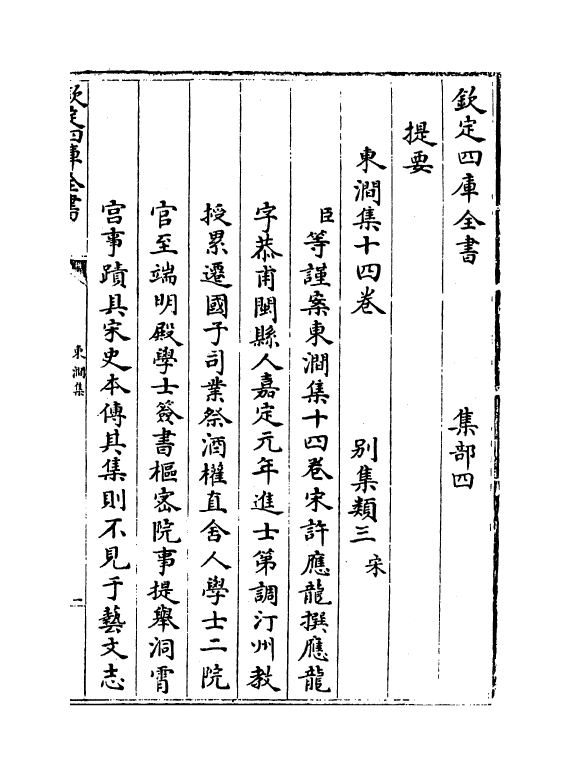 欽定四庫全書　集部四
提要
東澗集十四卷　別集類三宋
臣等謹案東澗集十四卷宋許應龍撰應龍
字恭甫閩縣人嘉定元年進士第調汀州教
授累遷國子司業祭酒權直舍人學士二院
官至端明殿學士簽書樞密院事提舉洞霄
宫事蹟具宋史本傳其集則不見于藝文志
欽定四庫全書
東澗集